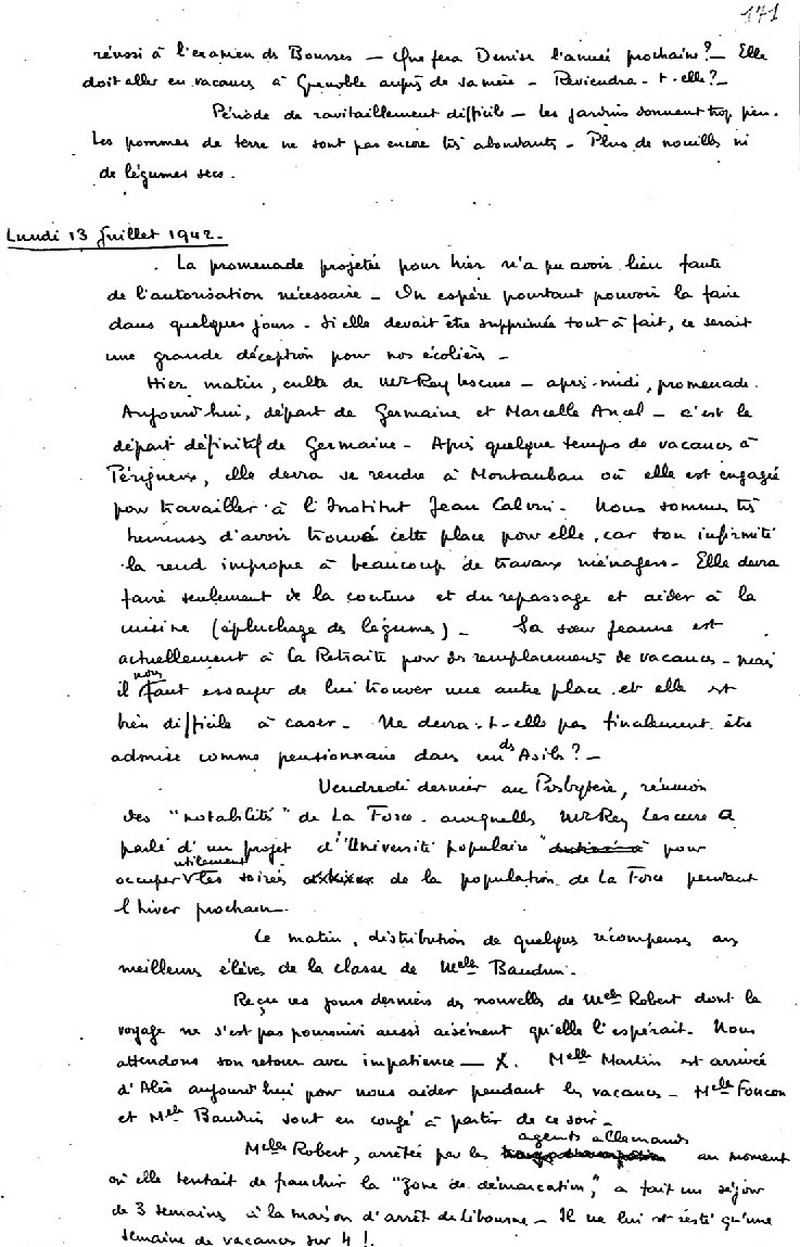 171
réussi à l'examen des Bourses — Que fera Denise l'année prochaine? — Elle
doit aller en vacances à Grenoble auprès de sa mère — Reviendra-t-elle? —
Période de ravitaillement difficile — les jardins donnent trop peu.
Les pommes de terre ne sont pas encore très abondantes — Plus de nouilles ni
de légumes secs.
Lundi 13 Juillet 1942.
La promenade projetée pour hier n'a pu avoir lieu faute
de l'autorisation nécessaire — On espère pourtant pouvoir la faire
dans quelques jours — Si elle devait être supprimée tout à fait, ce serait
une grande déception pour nos écoliers —
Hier matin, culte de Mr Rey Lescure — après-midi, promenade.
Aujourd'hui, départ de Germaine et Marcelle Ancel — c'est le
départ définitif de Germaine — Après quelque temps de vacances à
Périgueux, elle devra se rendre à Montauban où elle est engagée
pour travailler à l'Institut Jean Calvin. Nous sommes très
heureuses d'avoir trouvé cette place pour elle, car son infirmité
la rend impropre à beaucoup de travaux ménagers — Elle devra
faire seulement de la couture et du repassage et aider à la
cuisine (épluchage des légumes) — Sa sœur Jeanne est
actuellement à la Retraite pour des remplacements de vacances — mais
il nous faut essayer de lui trouver une autre place et elle est
bien difficile à caser — Ne devra-t-elle pas finalement être
admise comme pensionnaire dans un ds Asiles? —
Vendredi dernier au Presbytère, réunion
des "notabilités" de La Force — auxquelles Mr Rey Lescure a
parlé d'un projet d'"Université populaire" pour
occuper utilement les soirées de la population de La Force pendant
l'hiver prochain.
Ce matin, distribution de quelques récompenses aux
meilleurs élèves de la classe de Melle Baudun.
Reçu ces jours derniers des nouvelles de Melle Robert dont le
voyage ne s'est pas poursuivi aussi aisément qu'elle l'espérait. Nous
attendons son retour avec impatience — X. Melle Martin est arrivée
d'Alès aujourd'hui pour nous aider pendant les vacances — Melle Foucon
et Melle Baudun sont en congé à partir de ce soir —
Melle Robert, arrêtée par les agents allemands au moment
où elle tentait de franchir la "zone de démarcation," a fait un séjour
de 3 semaines à la maison d'arrêt de Libourne — Il ne lui est resté qu'une
semaine de vacances sur 4!.